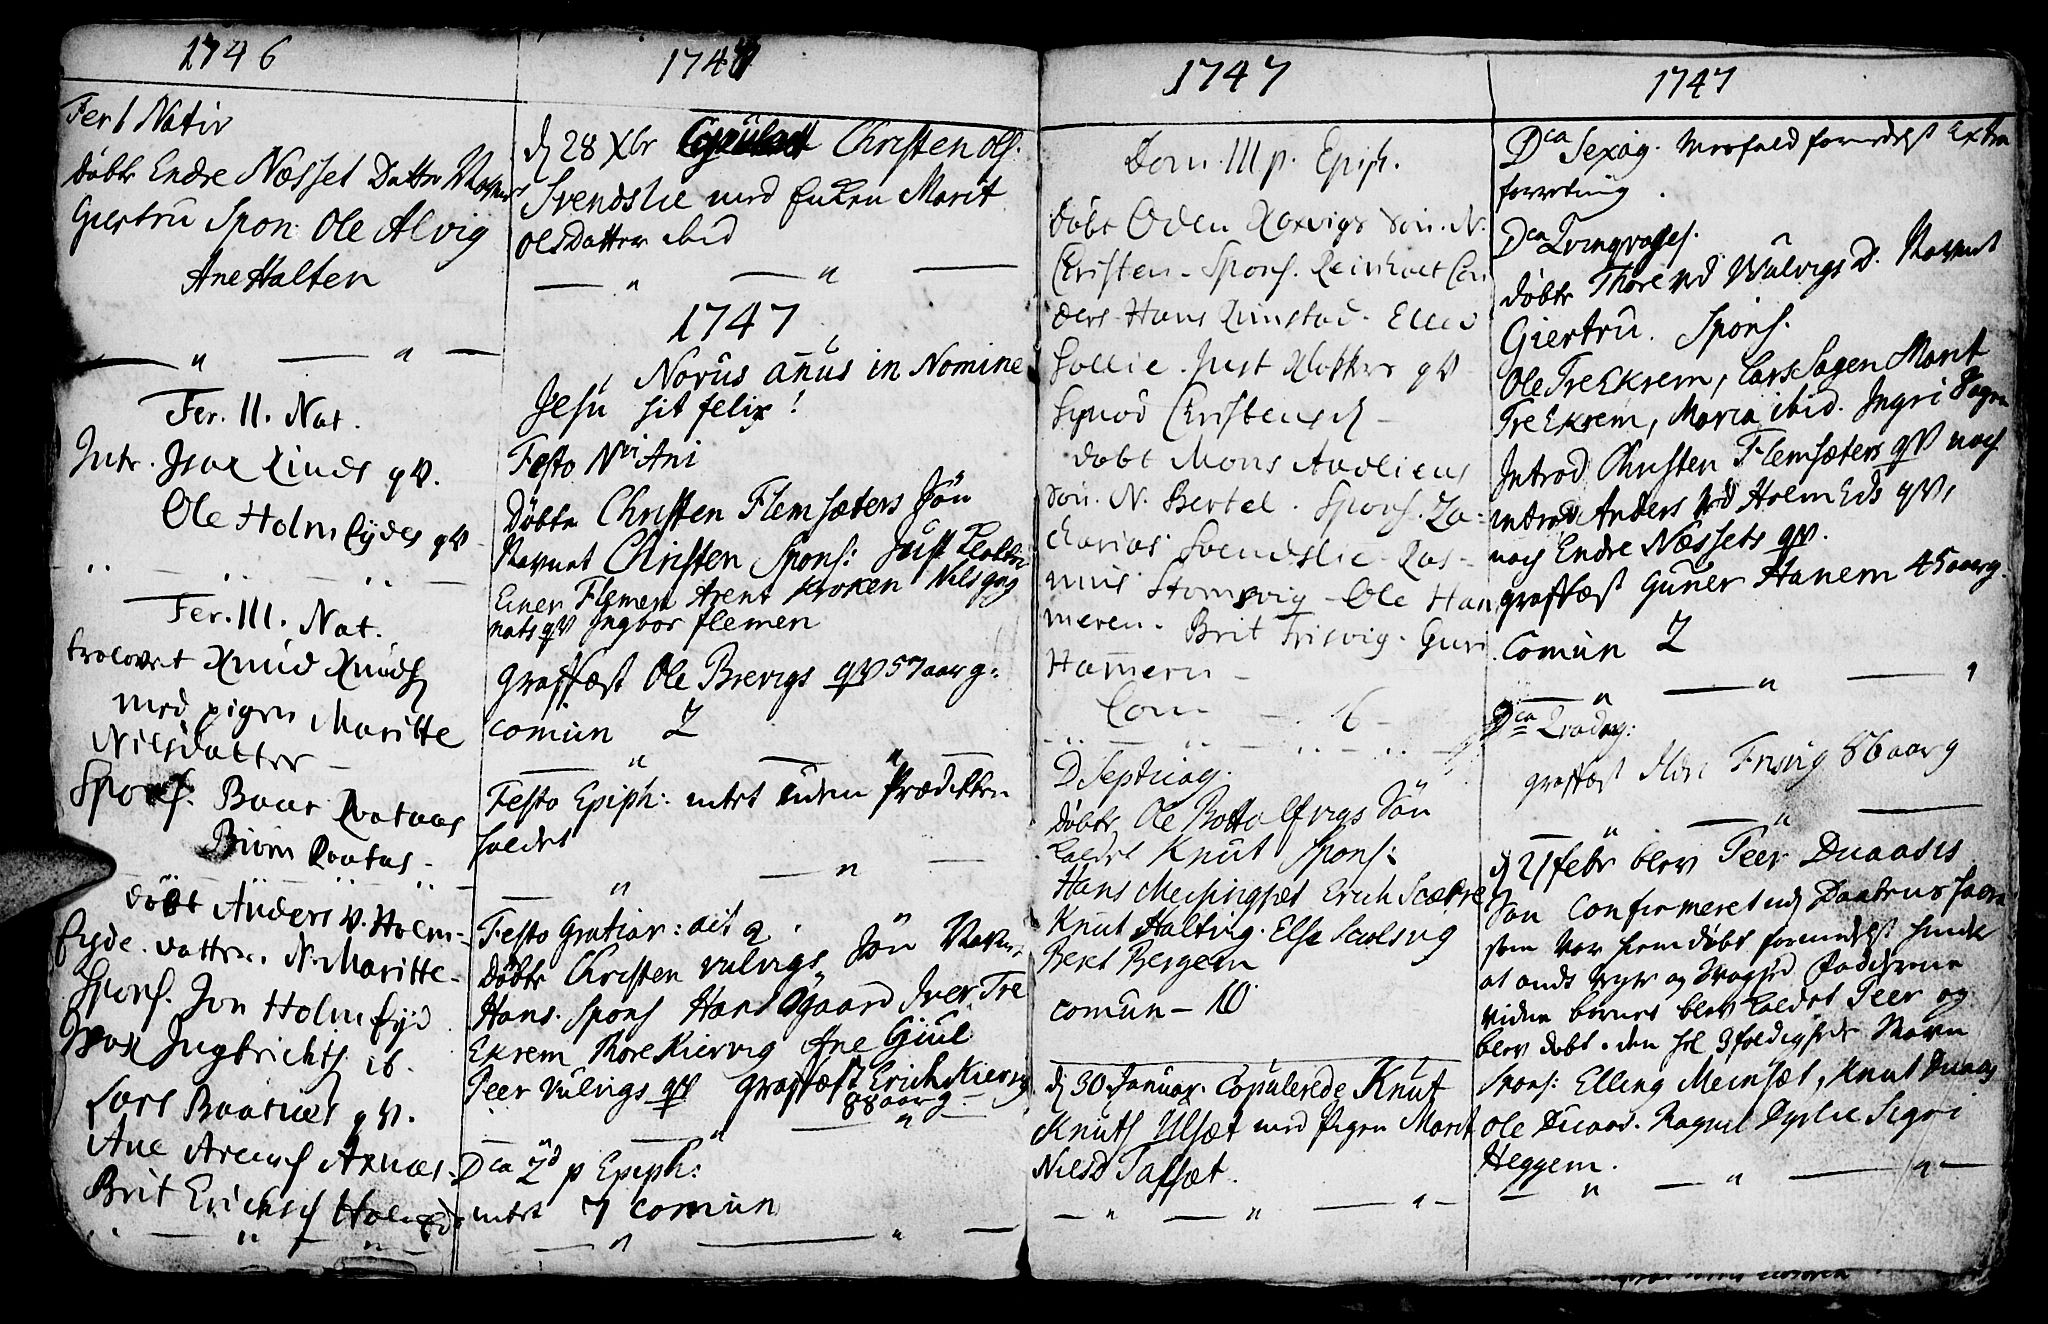 1746
Fer 1 Nativ
døbte Endre Næsset Datter Navnes
Giertru Spon: Ole Alvig
Ane Halten
Fer. II. Nat.
Intr. Isax Kinds qv.
Ole Holm Eydes qv
Fer. III. Nat.
trolovet Knud Knuds
med pigen Maritte
Nilsdatter
Spons. Baar
Biørn
døbt Anders v. Holm-
Eyde. datter. N. Maritte-
Spons. Jon Holm Eyd
Isax Ingbrichts ib.
Lars Baatnes qv.
Ane Arents Axnes
Brit Erichs Holm Ed
174
d 28 Xbr Christen Ols:
Svendslie med Enken Marit
olsdatter ibid
1747
Novus anus in Nomine
Jesu sit felix!
Festo Nvi Ani
Døbte Christen Flemsæters Søn
Navnet Christen Spons: Just
Einer Flemen Arent Kroken Nils
qv Ingbor flemen
graffæst Ole Brevigs qv 57 aar g:
comun 2
Festo Epiph: intet uden Prædikken
holdet
Festo Gratiar: act
døbte Christen vulvigs Søn Navn
Hans. Spons Hans Ogaard Iver Tre
Ekrem Thore Kiervig Ane Giul
Peer Vulvigs qv graffæst Erich Kiervig
88 aar g
Dca 2d p Epiph:
intet 7 comun
1747
Dom. III p. Epiph.
døbt Oden Korvigs Søn. N.
Christen - Spons. Reinholt Con
ders Hans Rimstad. Ellev
Sollie. Just Klokker qv
Synov Christensd
døbt Mons
Søn. N. Bertel. Spons. Za-
charias Svendslie Ras-
mus Stomsvig - Ole Ham
meren. Brit Frisvig. Guri
Hameren
Com - 6 -
D Septuag.
døbte Ole Bottolfvigs Søn
kaldet Knut Spons:
Hans Meisingset Erich Scætre
Knut Haltvig. Else Scolsvig
Beret Bergem
comun - 10
d 30 Januar. Copulerede Knut
Knuts Ulsæt med Pigen Marit
Nilsd Talsæt.
1747
Dca Sexag. Messfald formedelst Extra
forretning.
Dca
døbte Thore ved Wulvigs D. Navnet
Giertru. Spons.
Ole Tre Ekrem, Lars Sagen Marit
Tre Ekrem, Maria ibid. Ingri Sagen
Introd Christen Flemsæters qv noch
introd Anders ved Holm Eds qv,
noch Endre Næssets qv.
graffæst Guner Hanem 45 aar g.
Comun 2
graffæst Frisvig 86 aar g
d 21 febr blev Peer Duaases
Søn Confirmeret udj Daabens
som var hiemdøbt formedelst
at ondt og
viden børnet blev kaldet Peer og
blev døbt i den hel 3foldigheds Navn
Spons: Elling Meinsæt, Knut Duaas
Ole Duaas. Raguel Dyslie Sigri
Heggem.